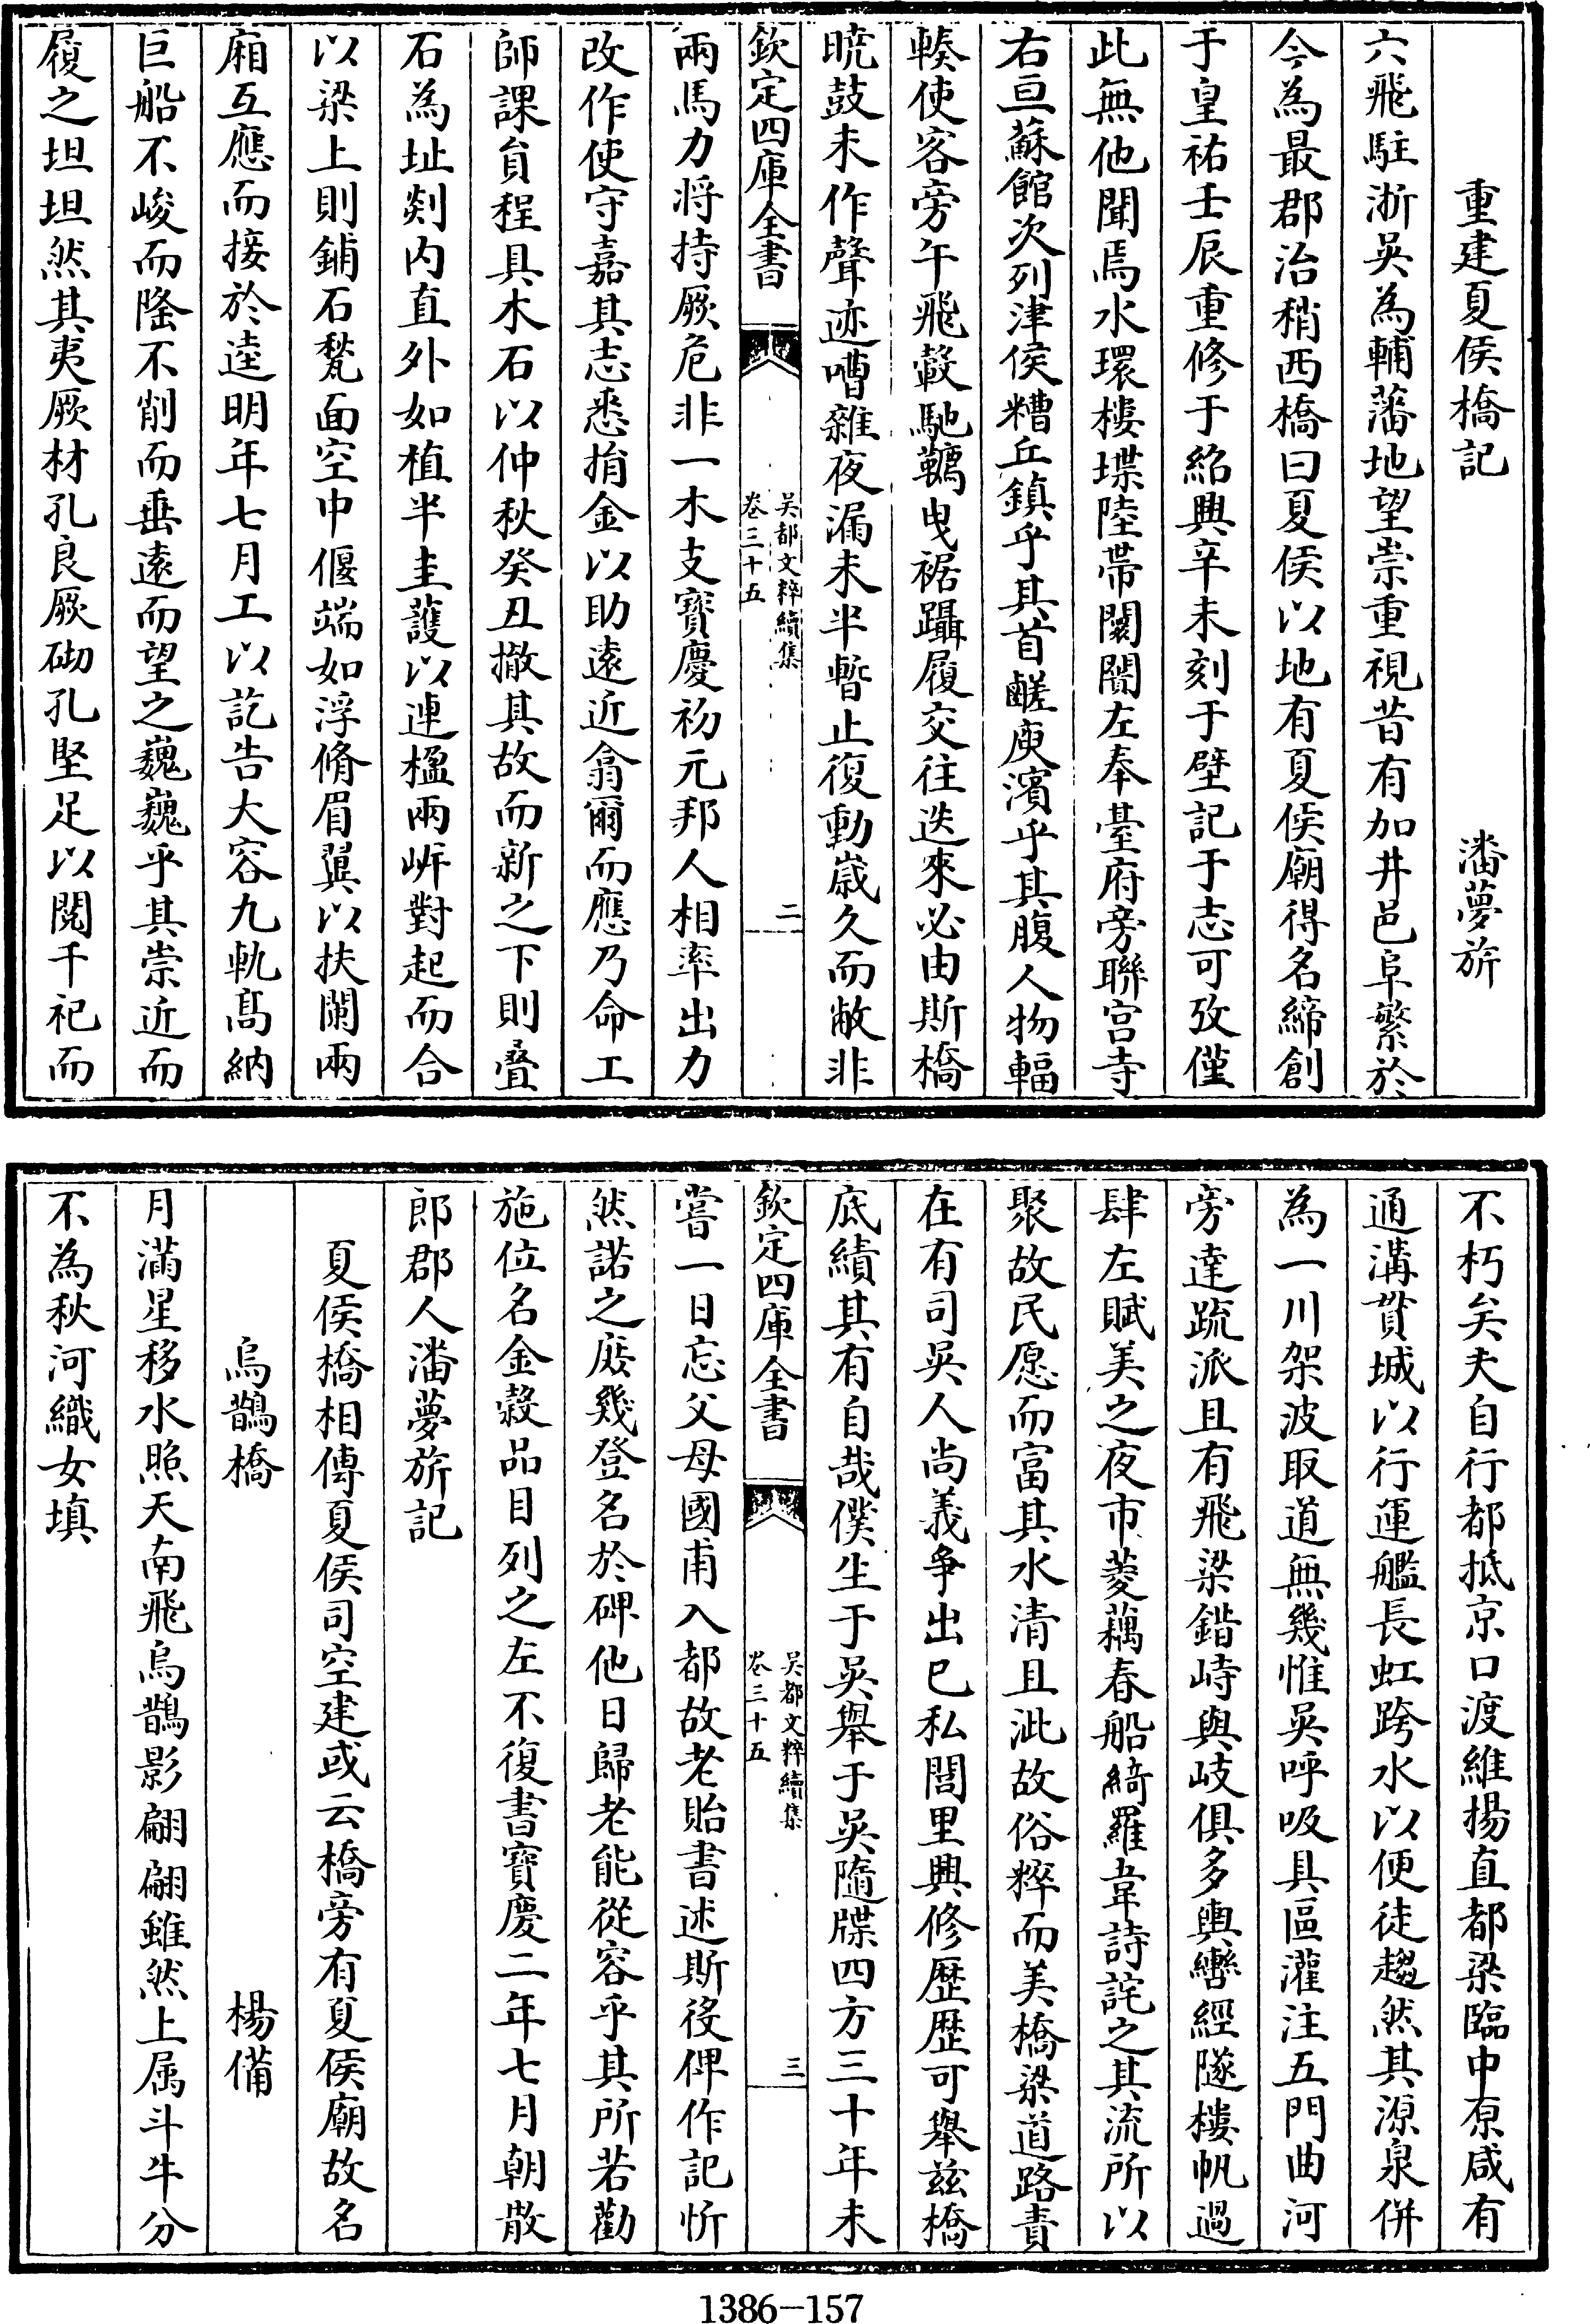 重建夏侯橋記　潘夢旂
六飛駐浙吳為輔藩地望崇重視昔有加井邑阜繁於
今為最郡治稍西橋曰夏侯以地有夏侯廟得名締創
于皇祐壬辰重修于紹興辛未刻于壁記于志可攷僅
此無他聞焉水環樓堞陸帶闤闠左奉臺府旁聯宫寺
右亘蘇館次列津侯糟丘鎮乎其首鹺庾濱乎其腹人物輻
輳使客旁午飛轂馳韉曳裾躡履交往迭來必由斯橋
暁鼓未作聲迹嘈雜夜漏未半暫止復動歳久而敝非
欽定四庫全書
吳都文粹續集
卷三十五
二
兩馬力将持厥危非一木支寳慶初元邦人相率出力
改作使守嘉其志悉捐金以助遠近翕爾而應乃命工
師課貟程具木石以仲秋癸丑撤其故而新之下則疊
石為址剡内直外如植半圭䕶以連楹兩㟁對起而合
以梁上則鋪石甃面空中偃端如浮脩眉翼以扶闌兩
廂互應而接於逵明年七月工以訖告大容九軌髙納
巨船不峻而隆不削而垂遠而望之巍巍乎其崇近而
履之坦坦然其夷厥材孔良厥砌孔堅足以閱千祀而
不朽矣夫自行都抵京口渡維揚直都梁臨中原咸有
通溝貫城以行運艦長虹跨水以便徒趨然其源泉併
為一川架波取道無幾惟吳呼吸具區灌注五門曲河
旁達疏派且有飛梁錯峙與岐俱多輿轡經隧樓帆過
肆左賦美之夜市菱藕春船綺羅韋詩詫之其流所以
聚故民愿而富其水清且泚故俗粹而美橋梁道路責
在有司吳人尚義爭出已私閭里興修歴歴可舉兹橋
底績其有自哉僕生于吳舉于吳隨牒四方三十年未
欽定四庫全書
吳都文粹續集
卷三十五
三
嘗一日忘父母國甫入都故老貽書述斯役俾作記忻
然諾之庻幾登名於碑他日歸老能從容乎其所若勸
施位名金榖品目列之左不復書寳慶二年七月朝散
郎郡人潘夢旂記
夏侯橋相傳夏侯司空建或云橋旁有夏侯廟故名
烏鵲橋　楊備
月滿星移水照天南飛烏鵲影翩翩雖然上属斗牛分
不為秋河織女填
1386-157